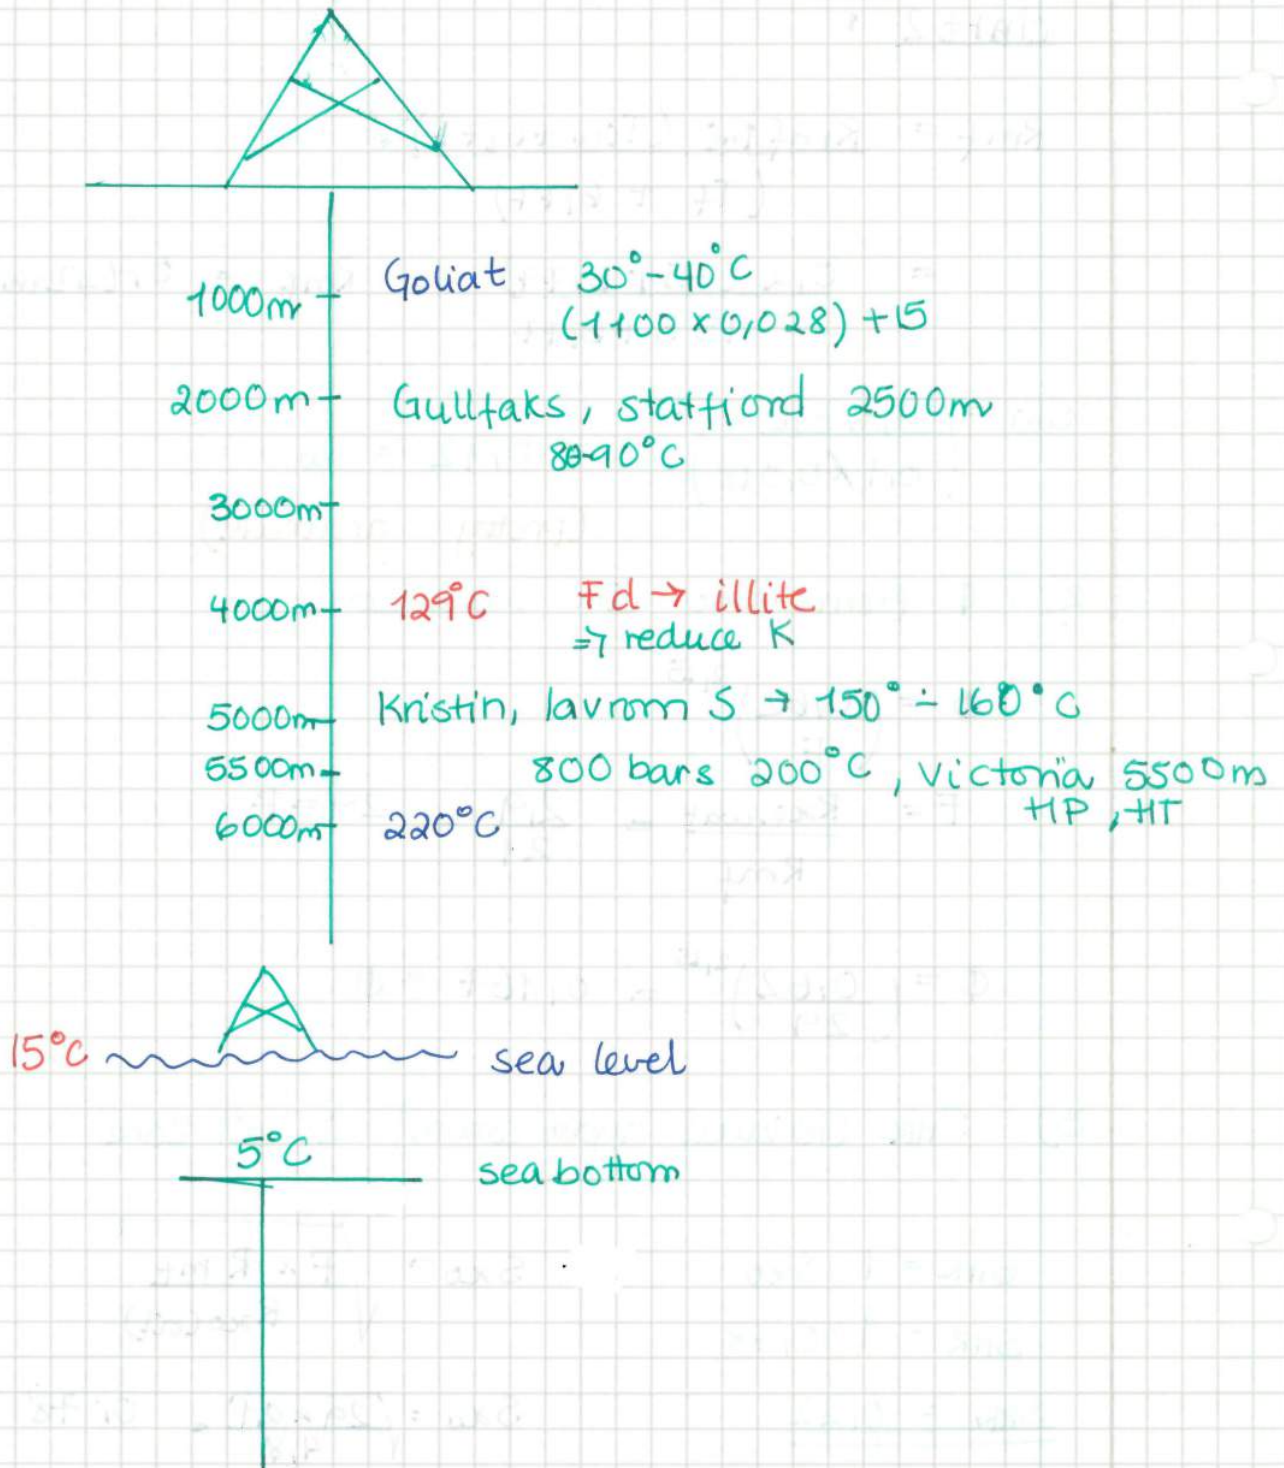 Goliat 30°-40°C
1000m
(1100 x 0,028) +15
2000m Gullfaks, statfjord 2500m
80-90°C
3000m
4000m 129°C Fd → illite
⇒ reduce K
5000m Kristin, lavrom S → 150° ÷ 160°C
5500m 800 bars 200°C, Victoria 5500m
6000m 220°C HP, HT
15°C sea level
5°C
sea bottom